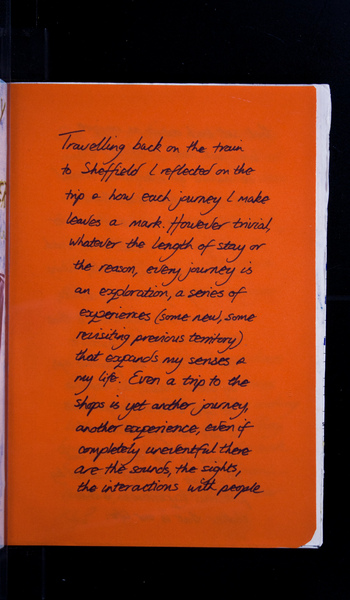 Travelling back on the train
to Sheffield I reflected on the
trip & how each journey I make
leaves a mark. However trivial,
whatever the length of stay or
the reason, every journey is
an exploration, a series of
experiences (some new, some
revisiting previous territory)
that expands my senses &
my life. Even a trip to the
shops is yet another journey,
another experience, even if
completely uneventful there
are the sounds, the sights,
the interactions with people